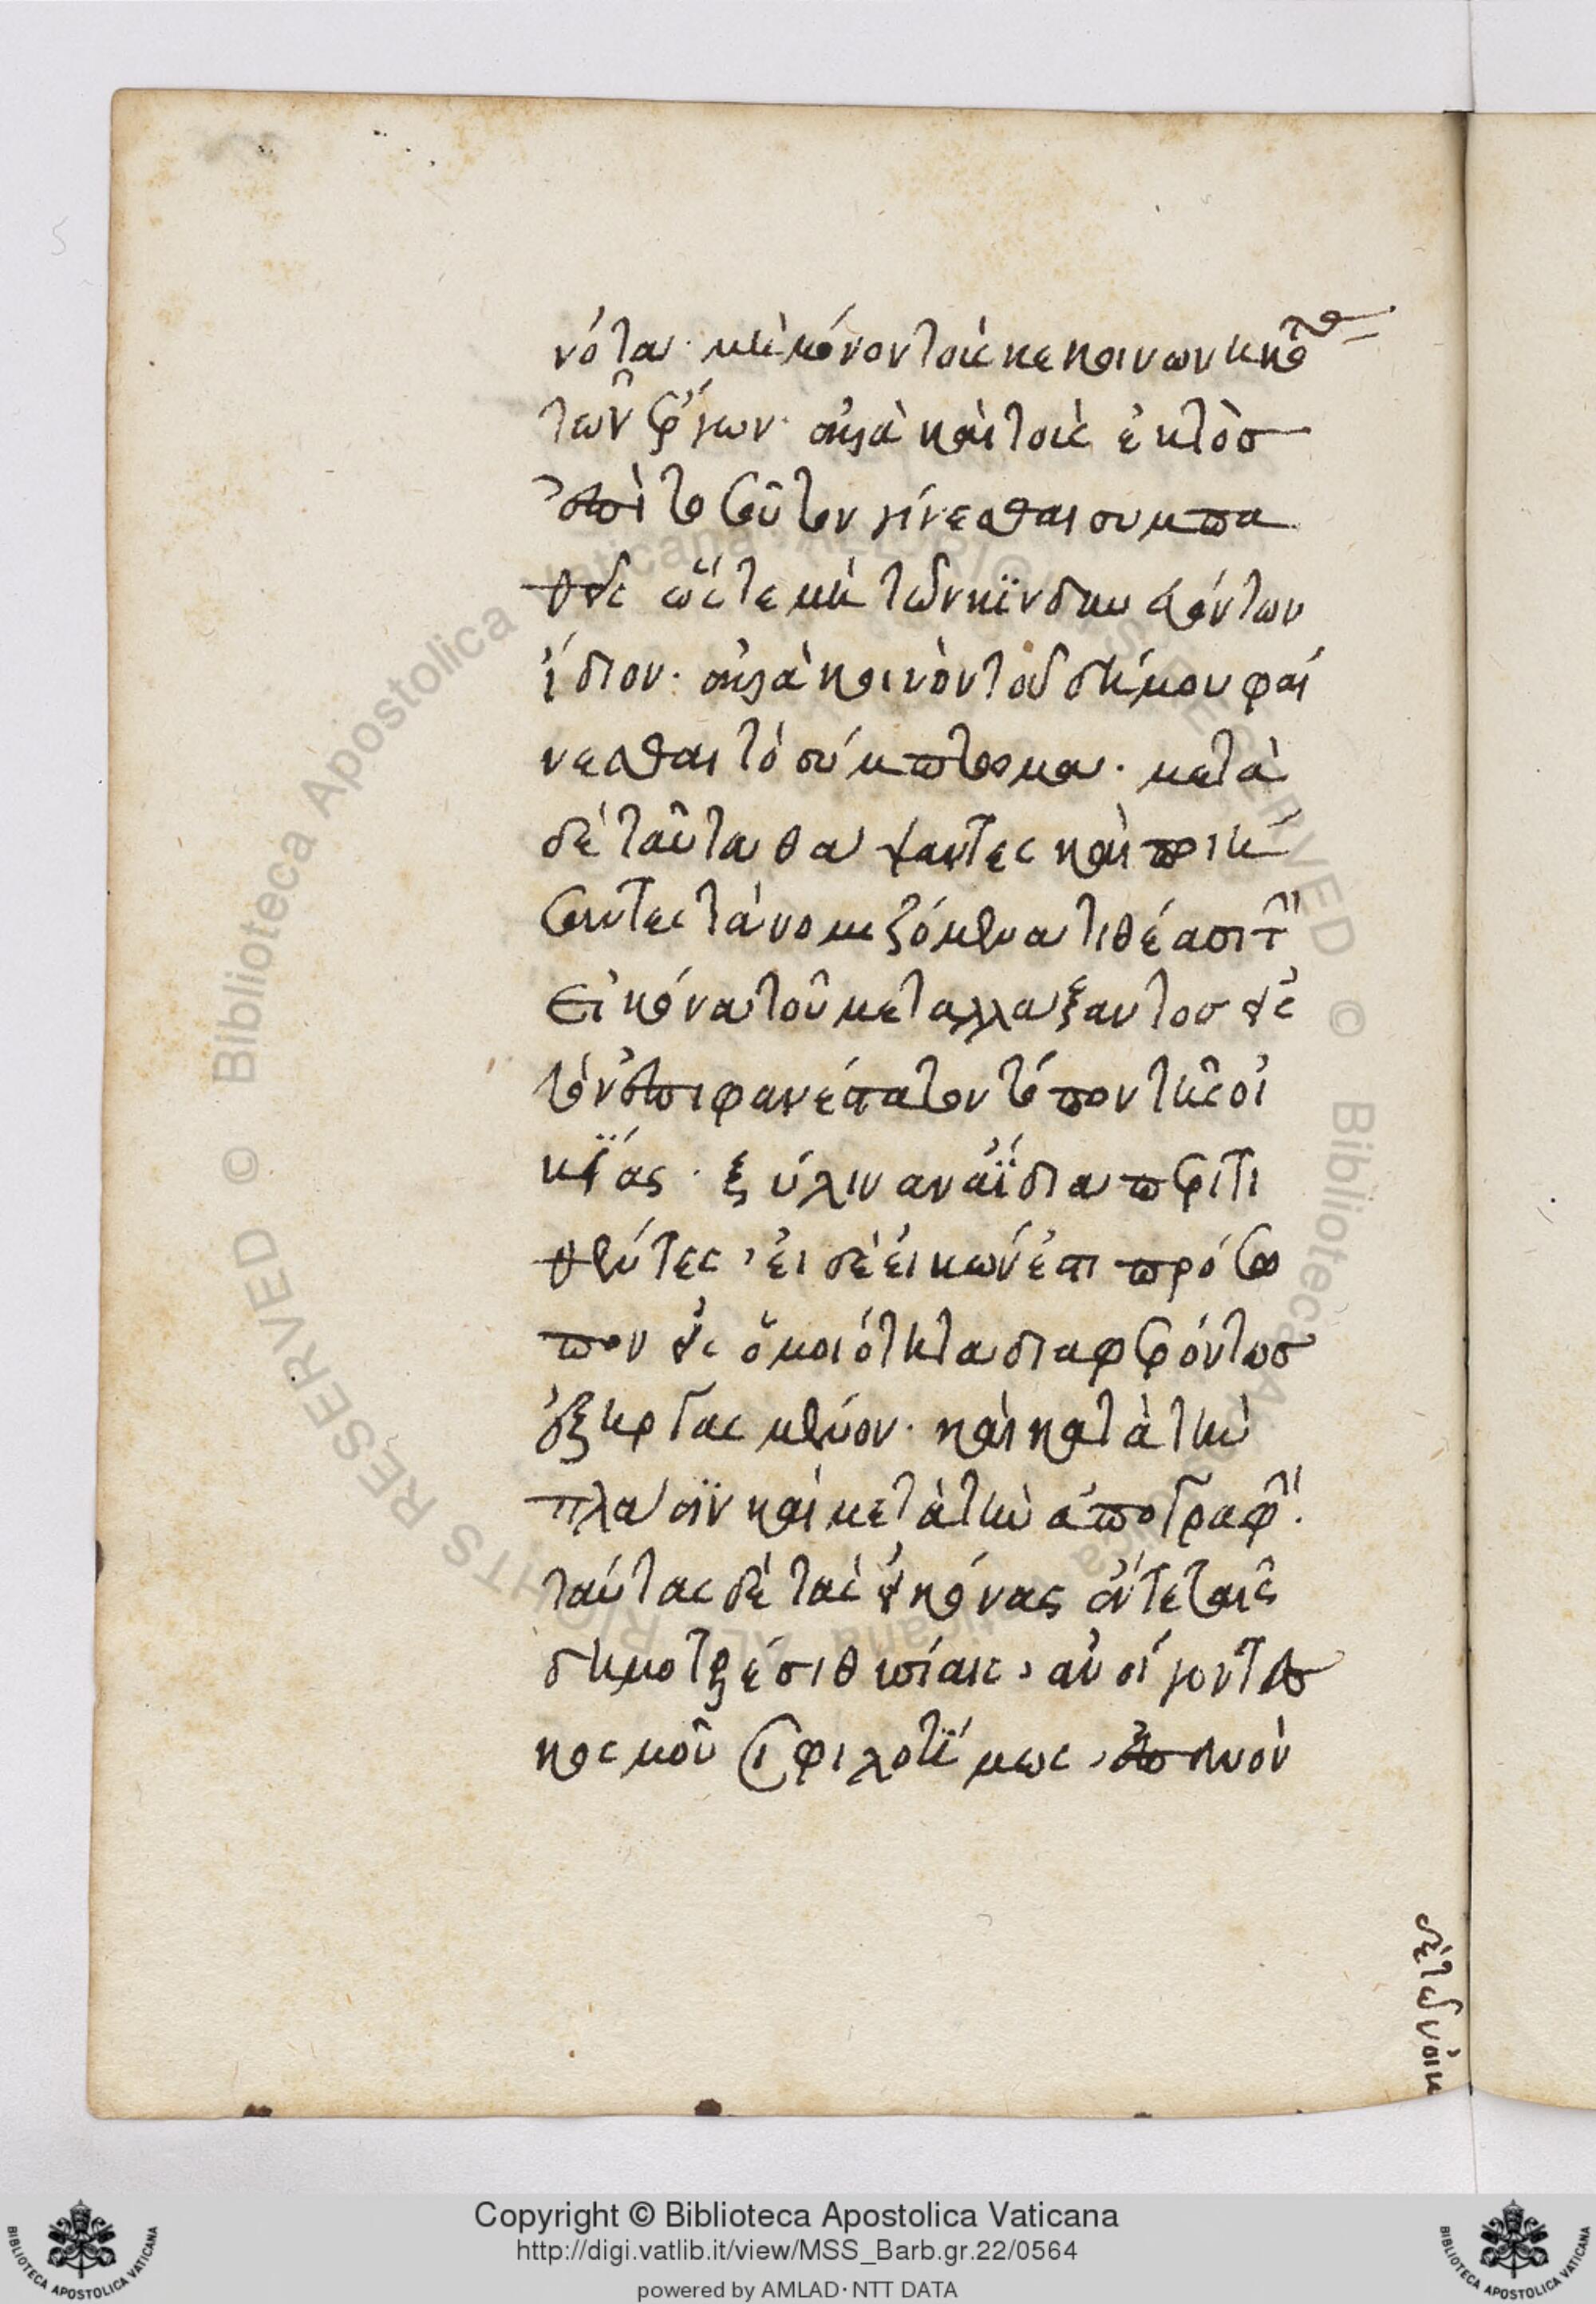 νότα· μὴ μόνον τοὶς κεκοινωνηκόσι
τῶν ἔργων· ἀλλὰ καὶ τοὶς ἐκτὸσ
ἐπὶ τοσοῦτον γίνεσθαι συμπα
θεῖς ὥστε μὴ τῶν κϊνδηυόντων
ἴδιον· ἀλλὰ κοινὸν τοῦ δήμου φαί
νεσθαι τὸ σύμπτωμα· μετὰ
δὲ ταῦτα θάψαντες καὶ ποιή
σαντες τὰ νομιζόμενα τιθέασι τὴν
εἰκόνα τοῦ μεταλλάξαντοσ εἰς
τὸν ἐπιφανέστατον τόπον τῆς οἰ
κΐας· ξύλινα ναΐδια περιτι
θέντες, ἡ δὲ εἰκών ἐστι πρόσω
πον εἰς ὁμοιότητα διαφερόντωσ
ἐξηργασμένον· καὶ κατὰ τὴν
πλάσϊν καὶ μετὰ τὴν ἀπογραφήν·
ταύτας δὲ τὰς εἰκόνας ἔν τε ταῖς
δημοτελέσι θυσίαις, ἀνοίγοντες
κοσμοῦσι φιλοτΐμως, ἐπὰν
δὲ τῶν οἰκ
Copyright © Biblioteca Apostolica Vaticana
http://digi.vatlib.it/view/MSS_Barb.gr.22/0564
powered by AMLAD·NTT DATA
BIBLIOTECA APOSTOLICA VATICANA
BIBLIOTECA APOSTOLICA VATICANA